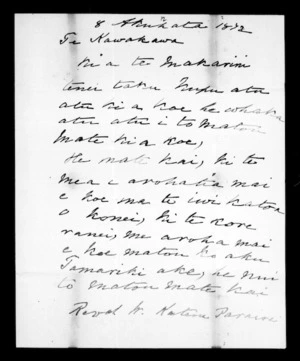 8 Akuhata 1872
Te Kawakawa
Ki a te Makarini
tenei taku kupu atu
atu ki a koe he whaka
atu atu i to matou
mate ki a koe,
He mate kai, ki te
mea e arohatia mai
e koe ma te iwi katoa
o konei, ki te kore
ranei, me aroha mai
e koe matou ko aku
Tamariki ake, he nui
to matou mate kai
Revd W.